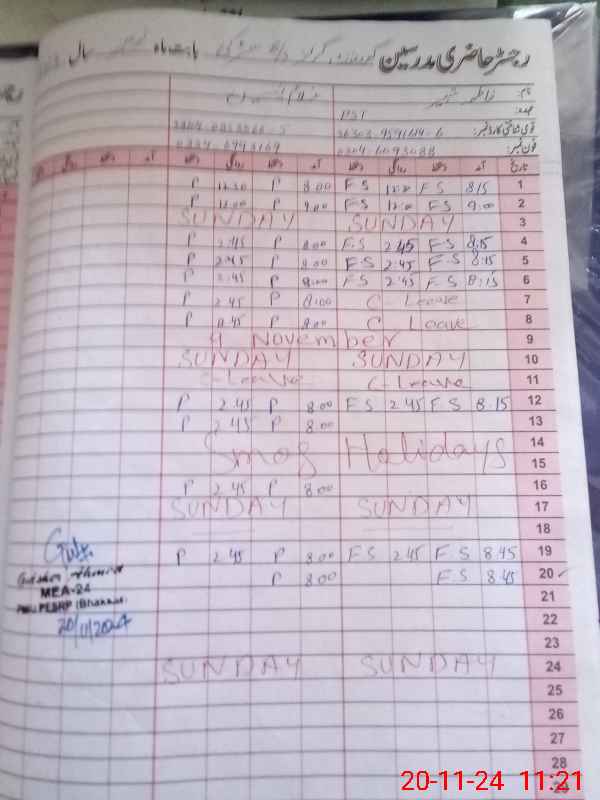 رجسٹر حاضری مدرسین بابت ماہ نومبر سال
نام:
عہدہ: PST
قومی شناختی کارڈ نمبر:
فون نمبر:
تاریخ آمد دستخط روانگی دستخط آمد دستخط روانگی دستخط
P 12:30 P 8:00 F S F S 8:15 1
P 12:00 P 9:00 F S 12:00 F S 9:00 2
SUNDAY SUNDAY 3
P 2:45 P 8:00 F.S 2:45 F S 8:15 4
P 2:45 P 8:00 F.S 2:45 F.S 8:15 5
P 2:45 P 8:00 F S 2:45 F S 8:15 6
P 2:45 P 8:00 C- Leave 7
P P 8:00 C- Leave 8
9 November 9
SUNDAY SUNDAY 10
C-Leave C-Leave 11
P 2:45 P 8:00 F S 2:45 F S 8:15 12
P 2:45 P 8:00 13
Smog Holidays 14
15
P 2:45 P 8:00 16
SUNDAY SUNDAY 17
18
P 2:45 P 8:00 F S 2:45 F S 8:45 19
P 8:00 F.S 8:45 20
21
22
23
SUNDAY SUNDAY 24
25
26
27
28
29
MEA-24
PMIU PESRP (Bhakkar)
20/11/2024
20-11-24 11:21